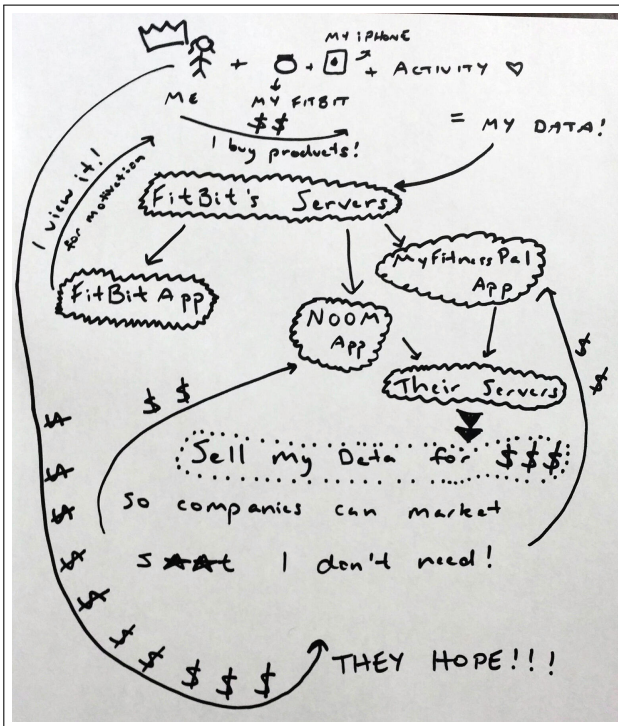 MY iPHONE
+ + + ACTIVITY ♡
ME MY FITBIT
$$
I buy products!
= MY DATA!
I view it!
for motivation
FitBit's Servers
FitBit App
MyFitnessPal
App
NOOM
App
Their Servers
$ $
$ $
Sell my Data for $$$
so companies can market
s**t I don't need!
$ $ $ $ $ $ $ $ $
THEY HOPE!!!